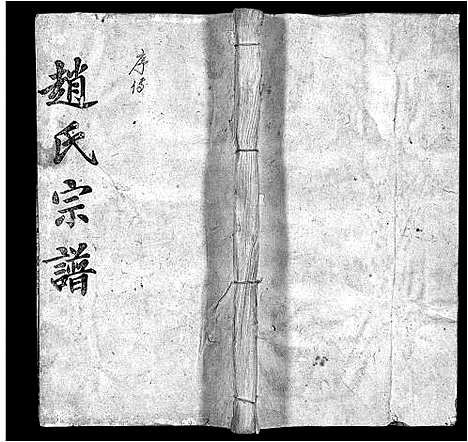 趙氏宗譜
序傳